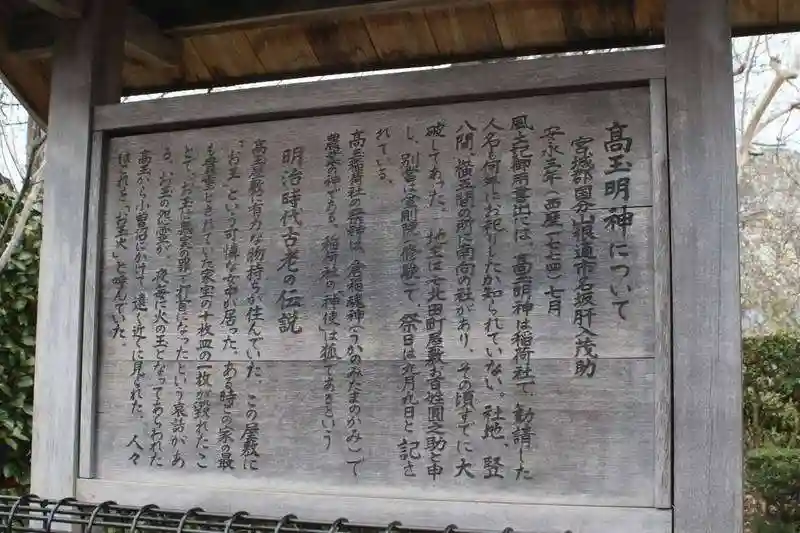 高玉明神について
宮城郡国分山根道市名坂肝入茂助
安永三年（西歴一七七四）七月
風土御用書出には、高玉明神は稲荷社で、勧請した
人名も何年にお祀りしたか知られていない。社地、竪
八間、横五間の所に南向の社があり、その頃すでに大
破してあった。地主は七北田町屋敷お百姓圓之助と申
し、別当は 修験 て、祭日は九月九日と記さ
れている。
高玉稲荷社の祭神は、倉稲魂神（うかのみたまのかみ）で
農業の神である。稲荷社の神使いは狐であるという
明治時代古老の伝説
高玉屋敷に有力な物持ちが住んでいた。この屋敷に
「お玉」という可憐な女中が居った。ある時この家の最
も貴重とされていた家宝の十枚皿の一枚が毀れたこ
とで、お玉は無実の罪で打首になったという哀話があ
る。お玉の怨霊が、夜毎に火の玉となってあらわれた
高玉から小曽沼にかけて、遠く近くに見られた。人々
はこれを「お玉火」と呼んでいた。